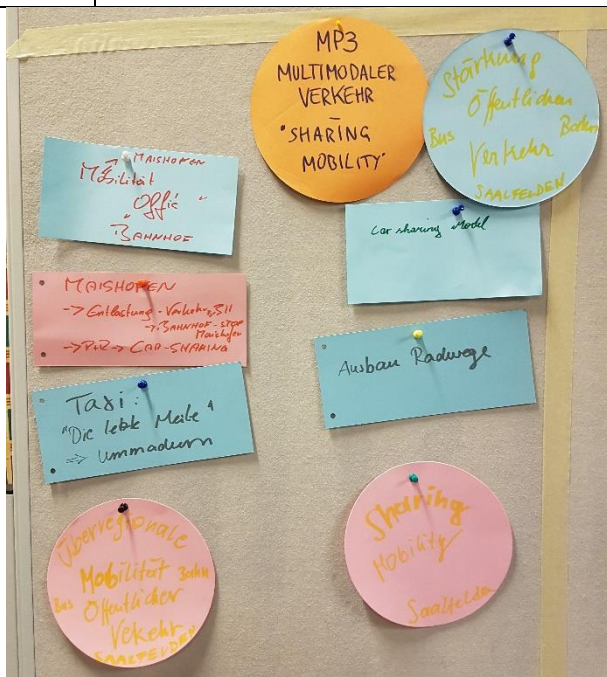 MP3
MULTIMODALER
VERKEHR
"SHARING
MOBILITY"
Stärkung
Öffentlichen
Bus Bahn
Verkehr
SAALFELDEN
MAISHOFEN
Mobilität
Offic "
"BAHNHOF
Car sharing Model
MAISHOFEN
-> Entlastung - Verkehr
-> BAHNHOF-STOP
Maishofen
-> P+R -> CAR-SHARING
Ausbau Radwege
Taxi:
"Die letzte Meile"
=> ummadum
Überregionale
Mobilität Bahn
Bus Öffentlicher
Vekehr
SAALFELDEN
Sharing
Mobility
Saalfelden